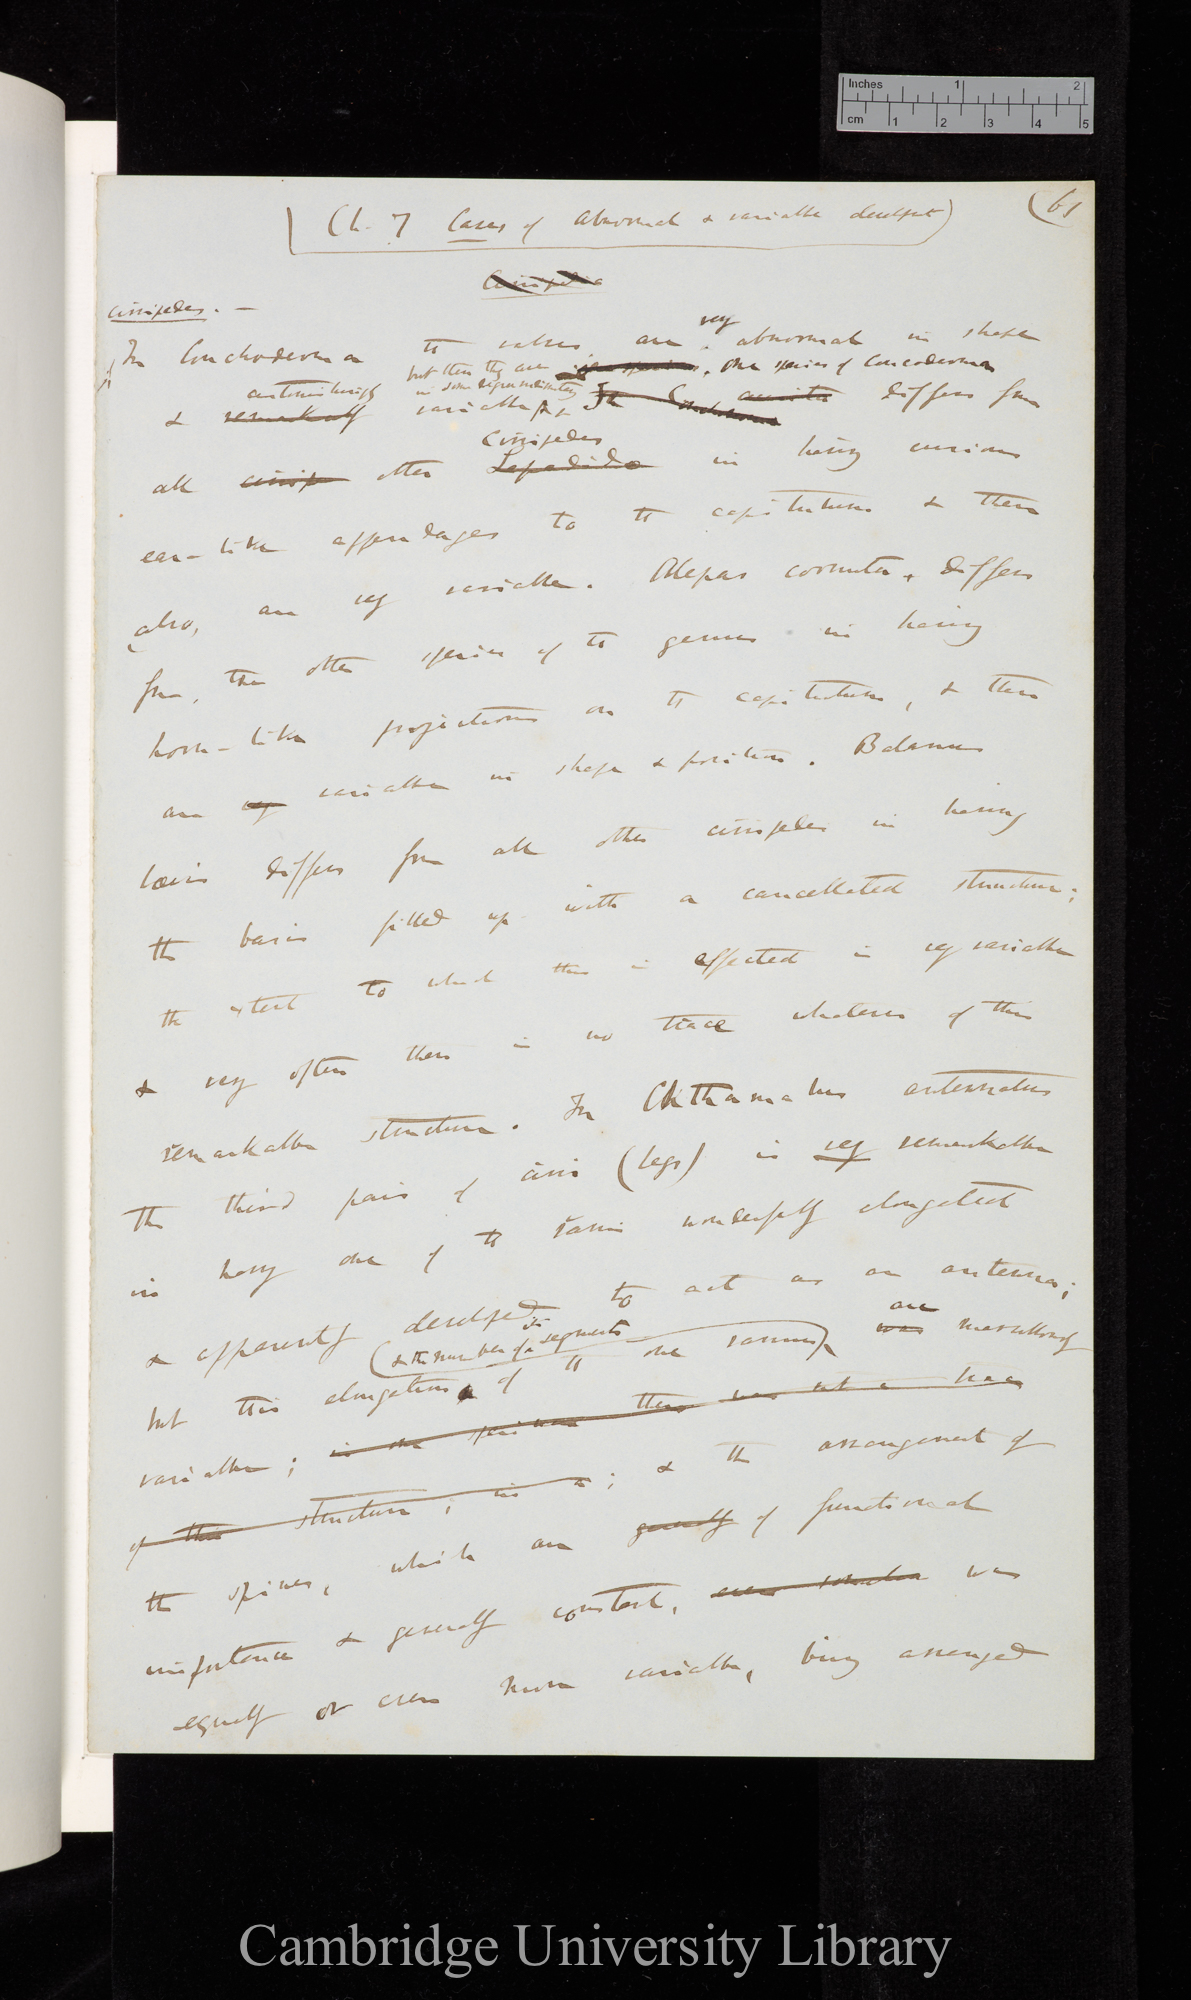 Inches 1 2
cm 1 2 3 4 5
(61
(Ch. 7 Cases of abnormal & variable developt)
Cirripedia
Cirripedes. —
In Conchoderma the valves are very abnormal in shape
but then they are in some degree rudimentary
one species of Conchoderma
& remarkably astonishingly variable; & In Conchoderma aurita differs from
all cirrip other Lepadidæ Cirripedes in having curious
ear-like appendages to the capitulum & these
also, are very variable. Alepas cornuta, differs
from, the other species of the genus in having
horn-like projections on the capitulum, & these
are very variable in shape & position. Balanus
lævis differs from all other cirripedes in having
the basis filled up with a cancellated structure;
the extent to which this is effected is very variable
& very often there is no trace whatever of this
remarkable structure. In Chthamalus antennatus
the third pair of cirri (legs) is very remarkable
in having one of the rami wonderfully elongated
& apparently developed to act as an antenna;
(& the number of its segments)
but this elongation of the one ramus, was are marvellously
variable; in one specimen there was not a trace
of this structure; in a; & the arrangement of
the spines, which are generally of functional
importance & generally constant, even was
equally or even more variable, being arranged
Cambridge University Library